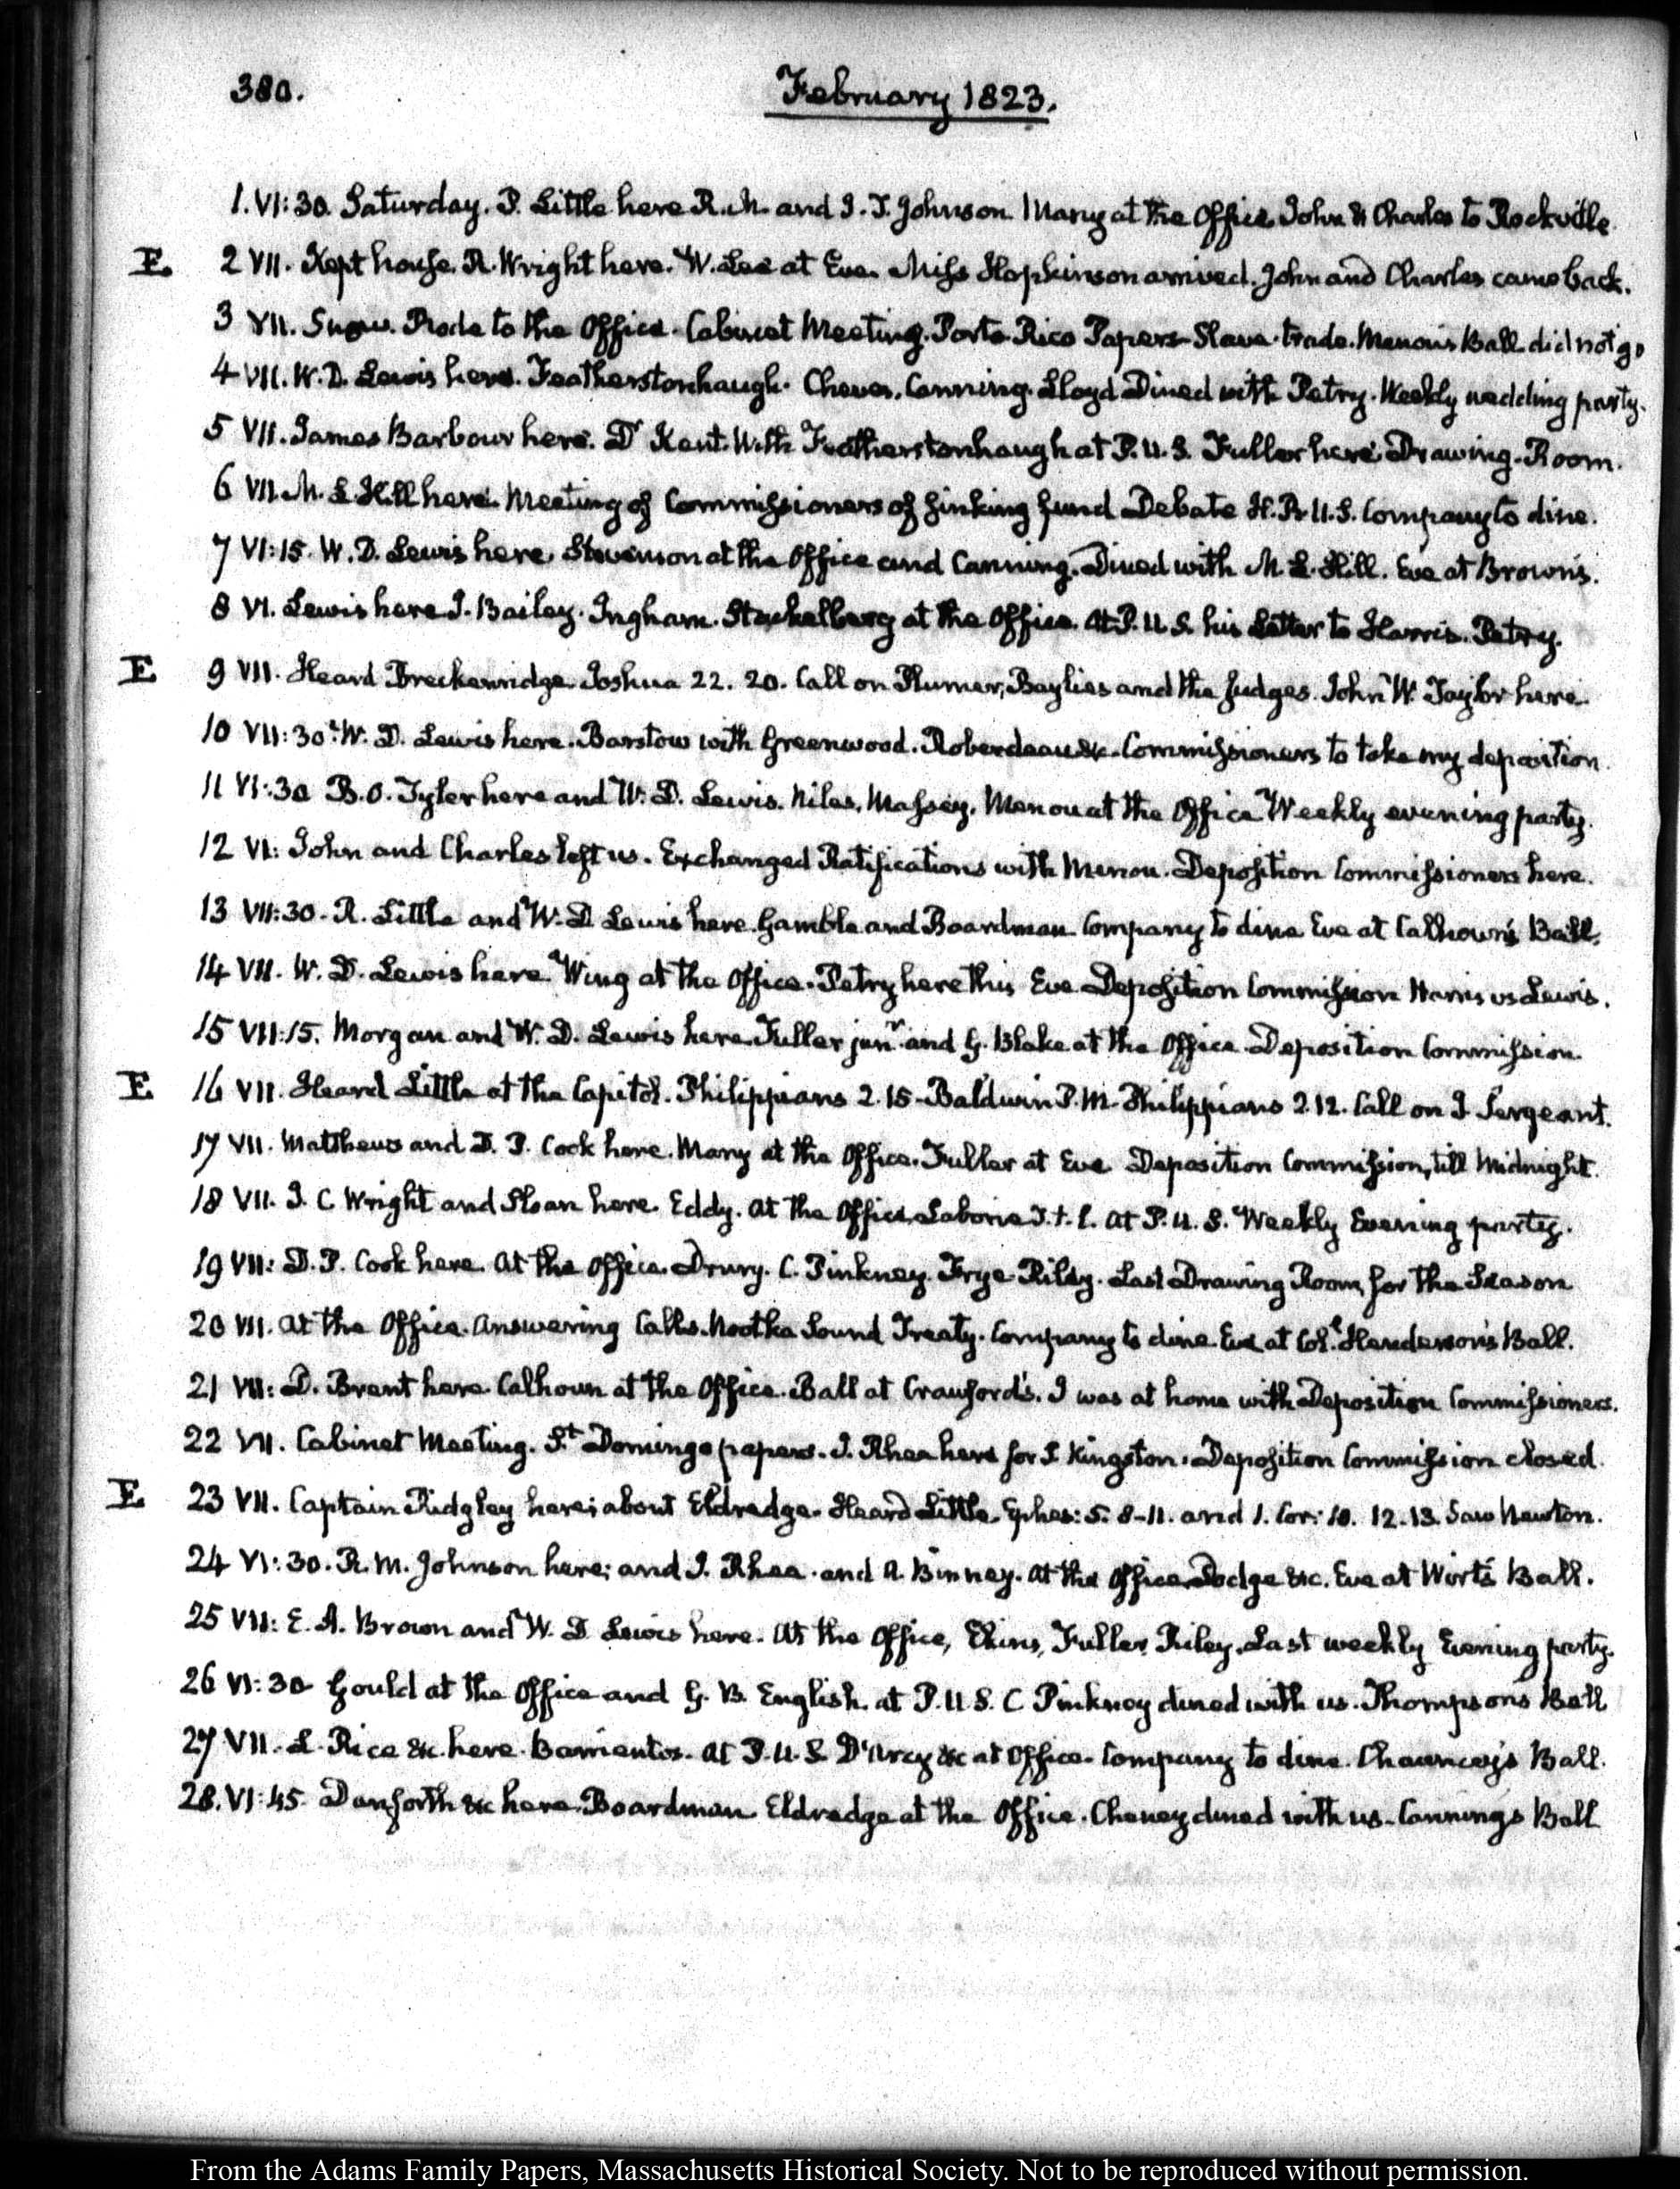 380.
February 1823.
1. VI:30. Saturday. P. Little here R. M. and J. T. Johnson Many at the Office John & Charles to Rockville.
E. 2 VII. Kept house. R. Wright here. W. Lee at Eve. Miss Hopkinson arrived. John and Charles came back.
3 VII. Snow. Rode to the Office. Cabinet Meeting. Porto Rico Papers Slave-trade. Menou's Ball did not go
4 VII. W. D. Lewis here. Featherstonhaugh. Cheves. Canning. Lloyd Dined with Petry. Weekly wedding party.
5 VII. James Barbour here. Dr Kent. With Featherstonhaugh at P.U.S. Fuller here. Drawing-Room.
6 VII. M. L. Hill here. Meeting of Commissioners of sinking fund Debate H.R.U.S. Company to dine.
7 VI:15. W. D. Lewis here. Stevenson at the Office and Canning. Dined with M. L. Hill. Eve at Brown's.
8 VI. Lewis here J. Bailey. Ingham. Stackelberg at the Office. At P.U.S. his Letter to Harris. Petry.
E 9 VII. Heard Breckenridge Joshua 22. 20. Call on Plumer, Baylies and the Judges. John W. Taylor here.
10 VII:30. W. D. Lewis here. Barstow with Greenwood. Roberdeau &c. Commissioners to take my deposition.
11 VI:30 B. O. Tyler here and W. D. Lewis. Niles, Massey. Menou at the Office Weekly evening party.
12 VI: John and Charles left us. Exchanged Ratifications with Menou. Deposition Commissioners here.
13 VII:30. R. Little and W. D Lewis here. Gamble and Boardman Company to dine Eve at Calhoun's Ball.
14 VII. W. D. Lewis here Wing at the Office. Petry here this Eve Deposition Commission Harris vs Lewis.
15 VII:15. Morgan and W. D. Lewis here. Fuller junr. and G. Blake at the Office. Deposition Commission.
E 16 VII. Heard Little at the Capitol. Philippians 2.15. Baldwin P.M. Philippians 2.12. Call on J. Sergeant.
17 VII. Matthews and D. P. Cook here. Many at the Office. Fuller at Eve Deposition Commission, till Midnight.
18 VII. J. C. Wright and Sloan here. Eddy. At the Office Laborie J.t.l. At P.U.S. Weekly Evening party.
19 VII: D. P. Cook here. At the Office. Drury. C. Pinkney. Frye. Riley. Last Drawing Room for the Season
20 VII. At the Office. Answering Calls. Nootka Sound Treaty. Company to dine. Eve at Col. Henderson's Ball.
21 VII: D. Brent here. Calhoun at the Office. Ball at Crawford's. I was at home with Deposition Commissioners.
22 VII. Cabinet Meeting. St Domingo papers. J. Rhea here for S Kingston. Deposition Commission closed.
E 23 VII. Captain Ridgley here; about Eldredge. Heard Little. Ephes: 5. 8-11. and 1. Cor: 10. 12.13. Saw Newton.
24 VI:30. R. M. Johnson here; and J. Rhea. and A. Binney. At the Office Dodge &c. Eve at Wirt's Ball.
25 VII: E. A. Brown and W. D Lewis here. At the Office, Ekins, Fuller, Riley. Last weekly Evening party.
26 VI:30 Gould at the Office and G. B. English. at P.U.S. C Pinkney dined with us. Thompson's Ball
27 VII. L. Rice &c. here. Barrientos. At P.U.S. D'Arcy &c at Office. Company to dine. Chauncey's Ball.
28. VI:45. Danforth &c here. Boardman Eldredge at the Office. Cheney dined with us. Canning's Ball
From the Adams Family Papers, Massachusetts Historical Society. Not to be reproduced without permission.